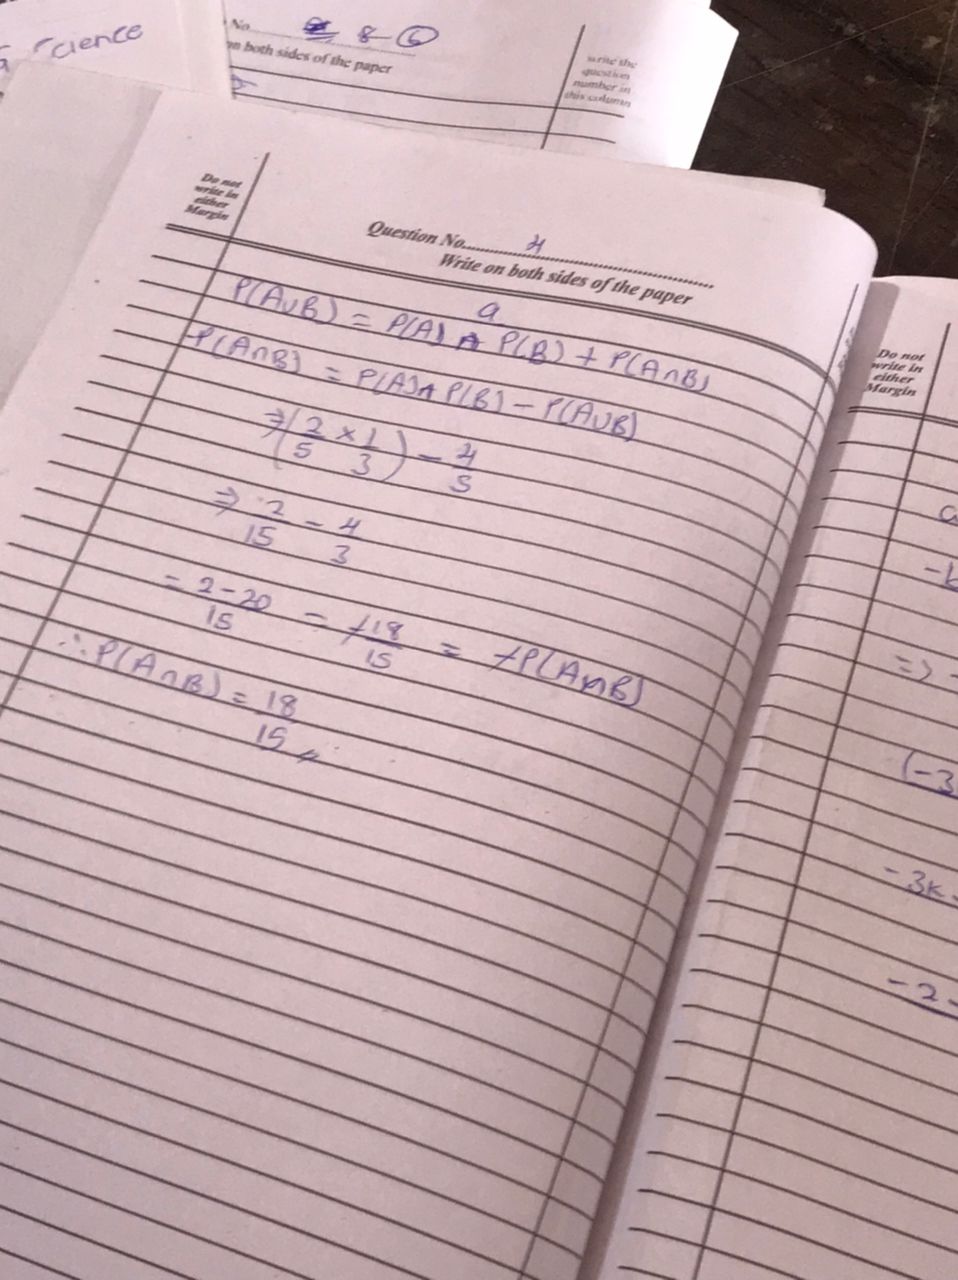 Science
No. 8-6
on both sides of the paper
write the
question
number in
this column
Do not
write in
either
Margin
Question No. 4
Write on both sides of the paper
a
P(A∪B) = P(A) ∧ P(B) + P(A∩B)
-P(A∩B) = P(A) ∧ P(B) - P(A∪B)
⇒(2/5 × 1/3) - 4/5
⇒ 2/15 - 4/3
= 2-20/15 = -18/15 = -P(A∩B)
∴ P(A∩B) = 18/15
Do not
write in
either
Margin
=>
(-3
-3k
-2